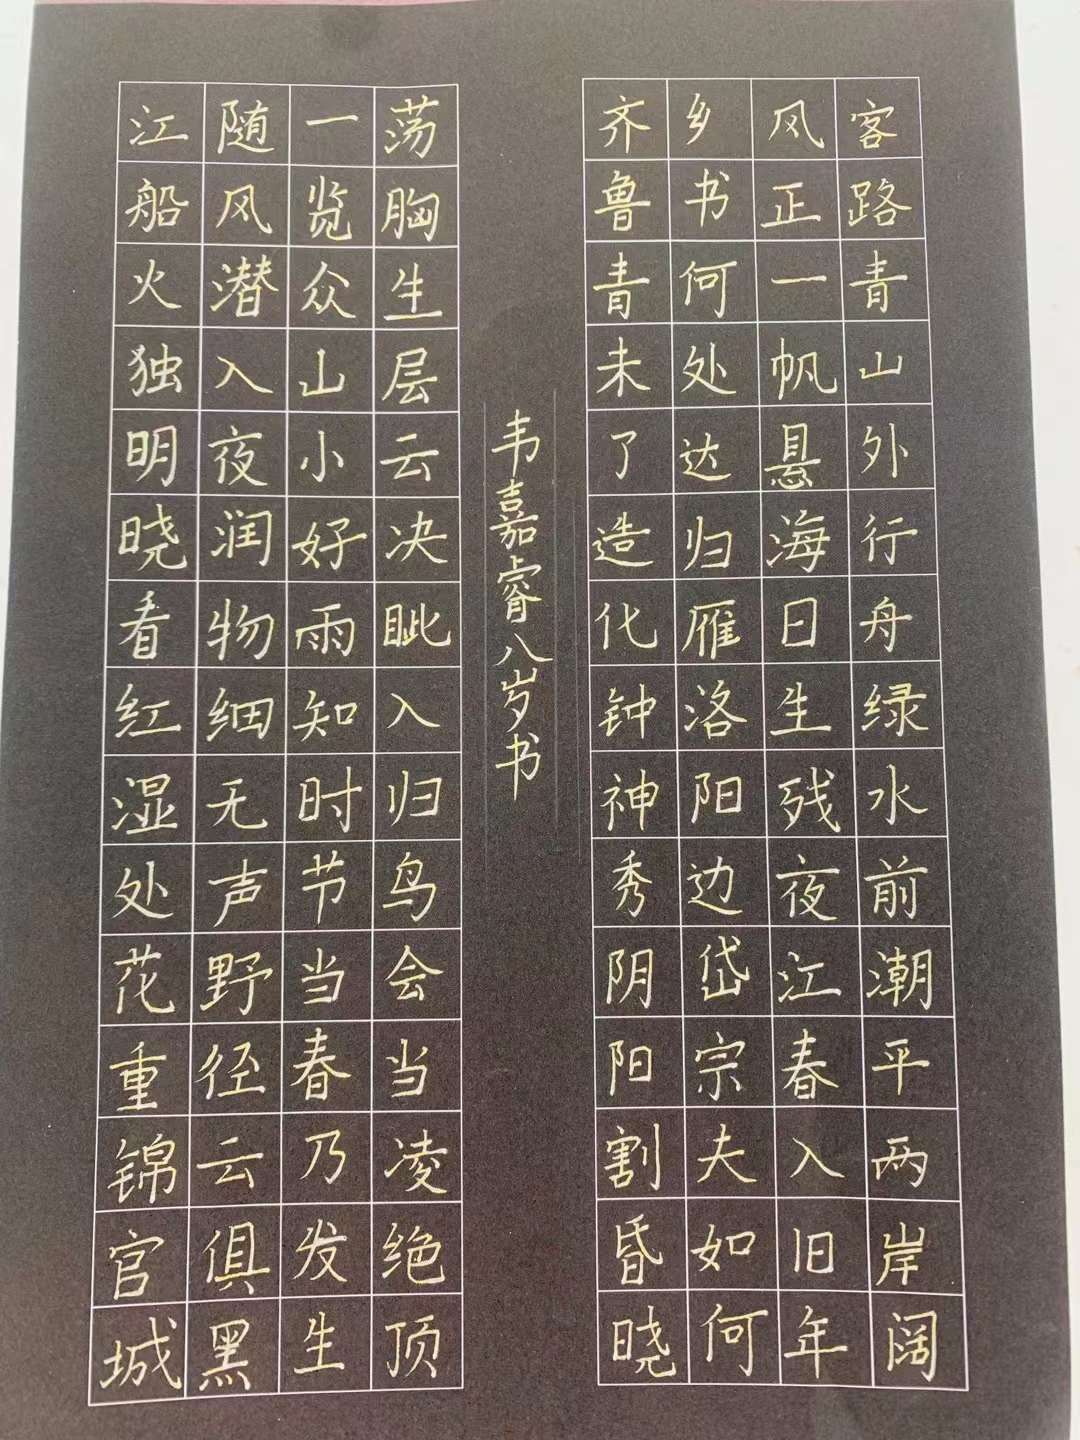 客路青山外行舟绿水前潮平两岸阔
风正一帆悬海日生残夜江春入旧年
乡书何处达归雁洛阳边岱宗夫如何
齐鲁青未了造化钟神秀阴阳割昏晓
荡胸生层云决眦入归鸟会当凌绝顶
一览众山小好雨知时节当春乃发生
随风潜入夜润物细无声野径云俱黑
江船火独明晓看红湿处花重锦官城
韦嘉睿八岁书